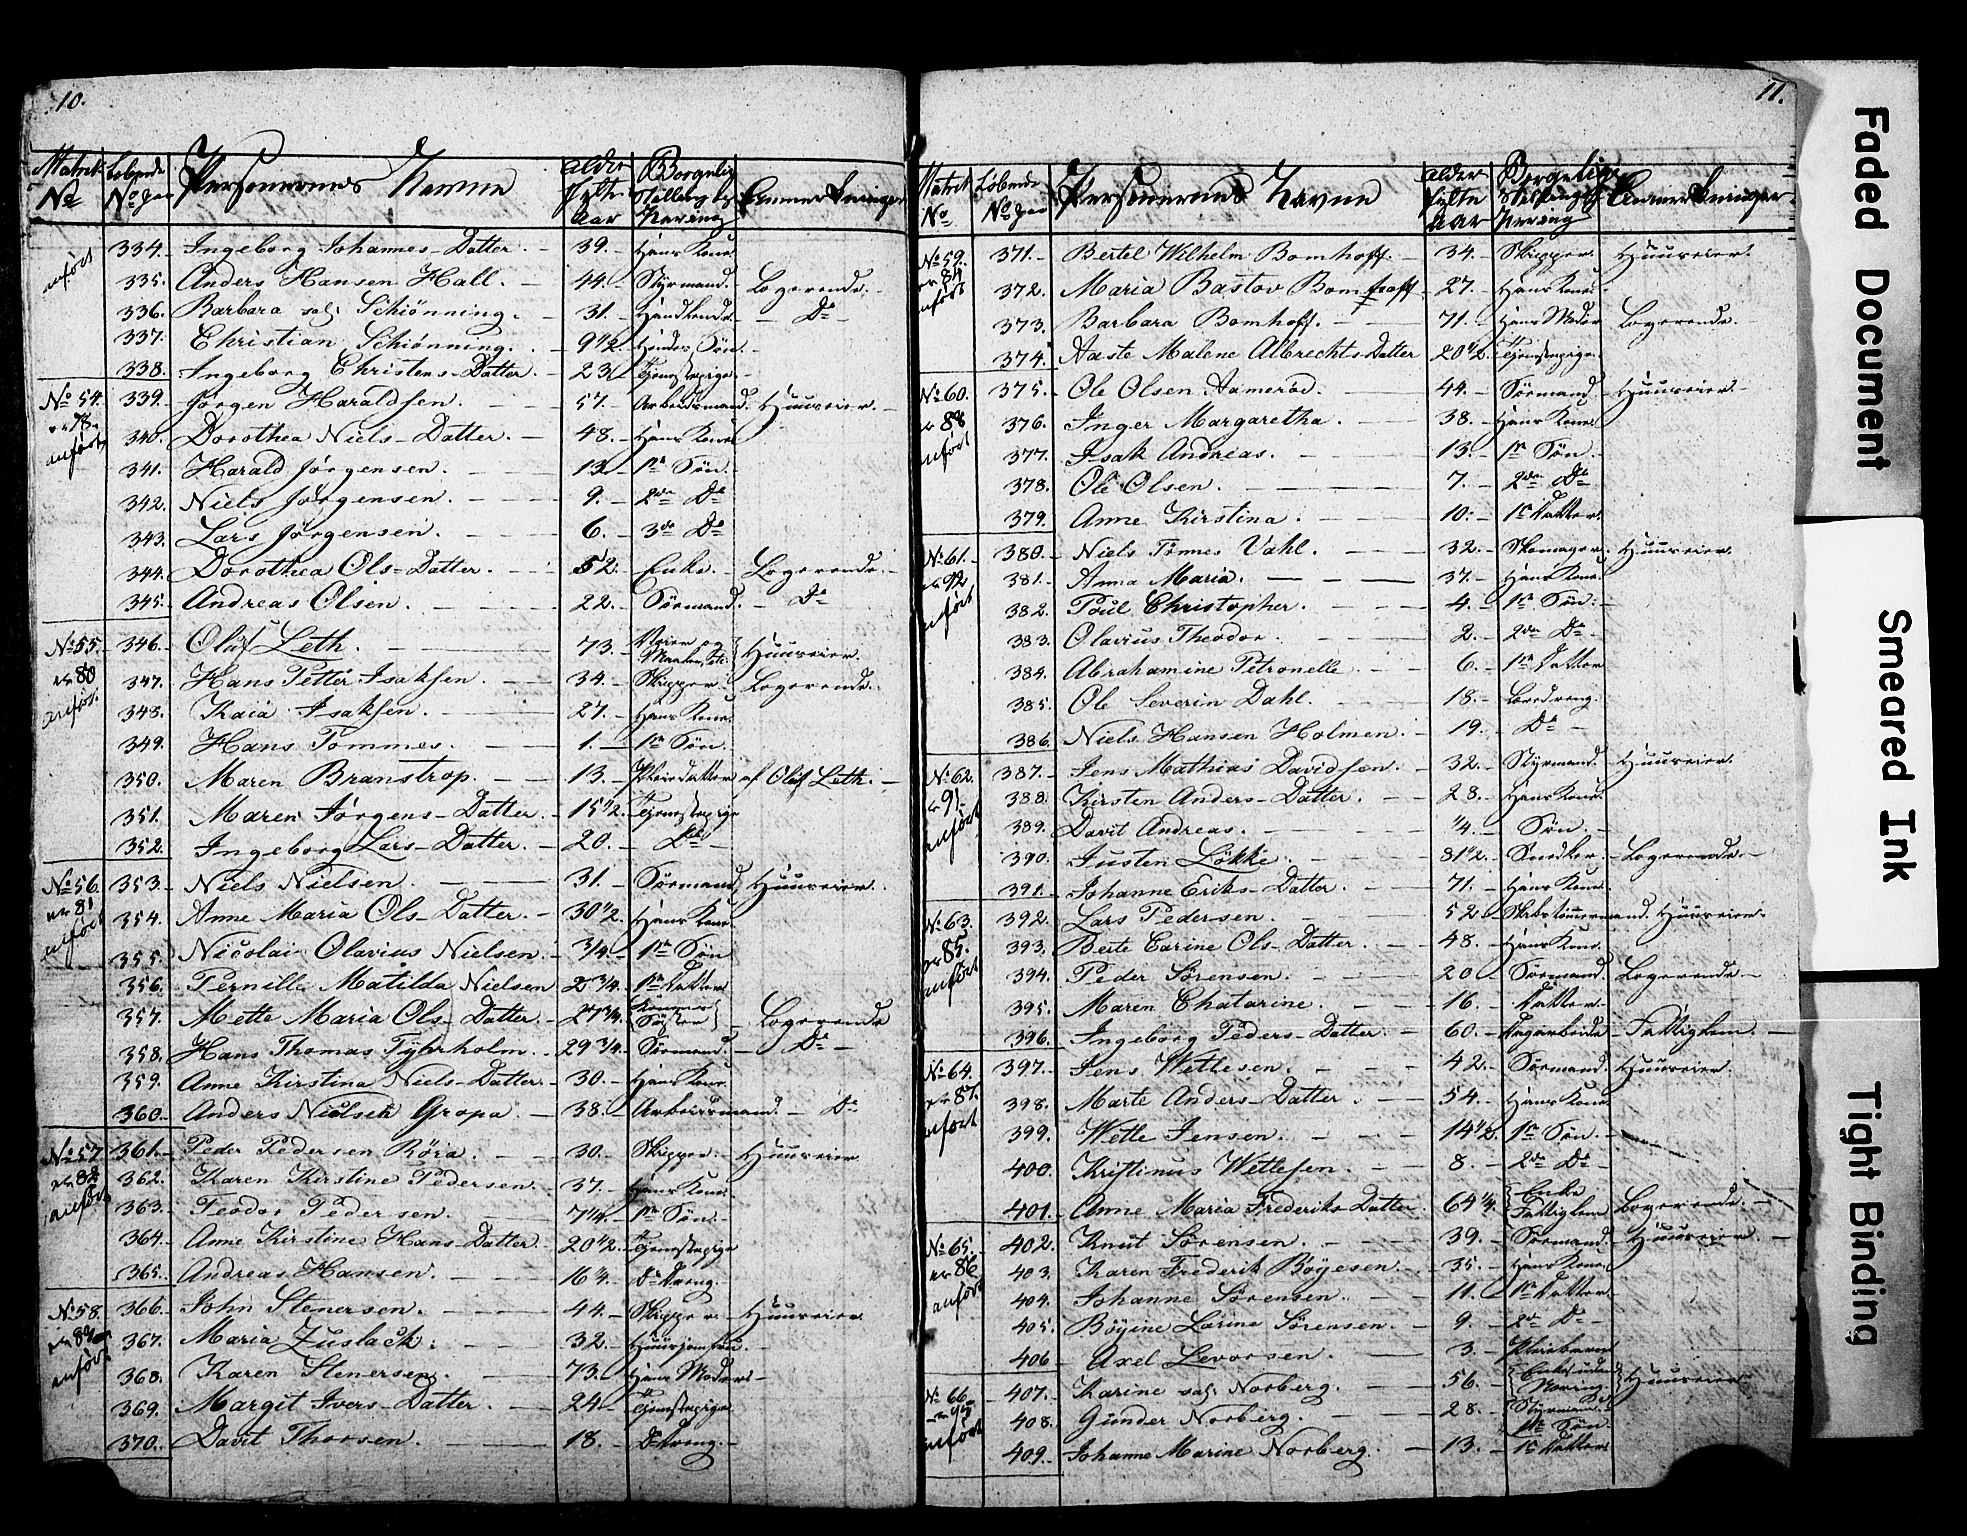 10.
Matrik No Løbende No Personernes Navne Alder fylte Aar Borgerlig Stilling og Næring Anmerkninger
anført 334. Ingeborg Johannes-Datter. 39. Hans Kone.
335. Anders Hansen Hall. 44. Styrmand. Logerende.
336. Barbara sal: Schiønning. 31. D°
337. Christian Schiønning. 9 1/2. Søn.
338. Ingeborg Christens-Datter. 23. Tjenestepige.
No 54. 339. Jørgen Haraldsen. 57. Arbeidsmand. Huuseier.
78. anført 340. Dorothea Niels-Datter. 48. Hans Kone
341. Harald Jørgensen. 13. 1n Søn.
342. Niels Jørgensen. 9. 2den D°
343. Lars Jørgensen. 6. 3de D°
344. Dorothea Ols-Datter. 52. Enke. Logerende.
345. Andreas Olsen. 22. Sørmand. D°
No 55. 346. Oluf Leth. 73. Huuseier.
80 anført. 347. Hans Petter Isaksen. 34. Skipper. Logerende.
348. Kaia Isaksen. 27. Hans Kone.
349. Hans Tommes. 1. 1n Søn.
350. Maren Branstrop. 13. Pleiedatter af Oluf Leth.
351. Maren Jørgens-Datter. 15 1/2. Tjenestepige
352. Ingeborg Lars-Datter. 20. D°
No 56. 353. Niels Nielsen. 31. Sørmand. Huuseier.
81 anført 354. Anne Maria Ols-Datter. 30 1/2. Hans Kone.
355. Nicolai Olavius Nielsen. 3/4. 1n Søn
356. Pernille Matilda Nielsen 2 3/4. 1n Datter
357. Mette Maria Ols-Datter. 27 3/4. Konens Søster Logerende
358. Hans Thomas Fyhrholm. 29 3/4. Sørmand. D°
359. Anne Kirstina Niels-Datter. 30. Hans Kone.
360. Anders Nielsen Gropa. 38. Arbeidsmand. D°
No 57 361. Peder Pedersen Röra. 30. Skipper. Huuseier
82 anført 362. Karen Kirstine Pedersen. 37. Hans Kone.
363. Feodor Pedersen. 7 1/4. 1n Søn.
364. Anne Kirstine Hans-Datter. 20 1/2. Tjenestepige
365. Andreas Hansen. 16 1/4. D° Dreng.
No 58. 366. John Stenersen. 44. Skipper. Huuseier
anført 367. Maria Zuslack. 32. Huusjomfru.
368. Karen Stenersen. 73. Hans Moder
369. Margit Ivers-Datter. 24. Tjenestepige
370. Davit Thorsen. 18. D° Dreng.
11.
Matrik No. Løbende No Personernes Navne Alder fylte Aar Borgerlige Stilling og Næring Anmerkninger
No 59. 371. Bertel Wilhelm Bomhoff. 34. Skipper. Huuseier.
84 anført 372. Maria Bastov Bomhoff 27. Hans Kone.
373. Barbara Bomhoff. 71. Hans Moder Logerende.
374. Aaste Malene Albrechts-Datter 20 1/2. Tjenestepige.
No 60. 375. Ole Olsen Aamerød. 44. Sørmand. Huuseier
88 anført 376. Inger Margaretha. 38. Hans Kone.
377. Isak Andreas. 13. 1n Søn.
378. Ole Olsen. 7. 2den D°
379. Anne Kirstina. 10. 1e Datter
No 61. 380. Niels Tønnes Vahl. 32. Skomager. Huuseier
92 anført 381. Anna Maria. 37. Hans Kone.
382. Poul Christopher. 4. 1n Søn.
383. Olavius Theodor. 2. 2den D°
384. Abrahamine Petronelle 6. 1n Datter
385. Ole Severin Dahl. 18. Læredreng.
386. Niels Hansen Holmen. 19. D°
No 62. 387. Jens Mathias Davidsen. 32. Styrmand. Huuseier.
91. anført 388. Kirsten Anders-Datter. 28. Hans Kone.
389. Davit Andreas. 1/4. Søn.
390. Justen Løkke. 81 1/2. Snedker. Logerende.
391. Johanne Eriks-Datter. 71. Hans Kone.
No 63. 392. Lars Pedersen. 52. Skibstømmermand. Huuseier.
85. anført 393. Berte Carine Ols-Datter. 48. Hans Kone.
394. Peder Sørensen. 20 Sørmand. Logerende
395. Maren Chatarine. 16. Datter.
396. Ingeborg Peders-Datter. 60. Dagarbeide Fattiglem.
No 64. 397. Jens Wettesen. 42. Sørmand. Huuseier.
87. anført 398. Marte Anders-Datter. 54. Hans Kone
399. Wette Jensen. 14 1/2. 1n Søn.
400. Kristinus Wetlesen. 8. 2den D°
401. Anne Maria Frederiks-Datter. 64 1/4. Enke Fattiglem Logerende.
No 65. 402. Knut Sørensen. 39. Sørmand. Huuseier.
86 anført 403. Karen Frederik Bøyesen. 35. Hans Kone
404. Johanne Sørensen. 11. 1n Datter
405. Bøyine Larine Sørensen. 9. 2de D°
406 Axel Levorsen. 3. Pleiebarn
No 66. 407. Karine sal: Norberg. 56. Enke uden Næring. Huuseier
anført 408. Gunder Norberg. 28. Styrmand. 1n Søn.
409. Johanne Marine Norberg. 13. 1e Datter
Faded Document
Smeared Ink
Tight Binding